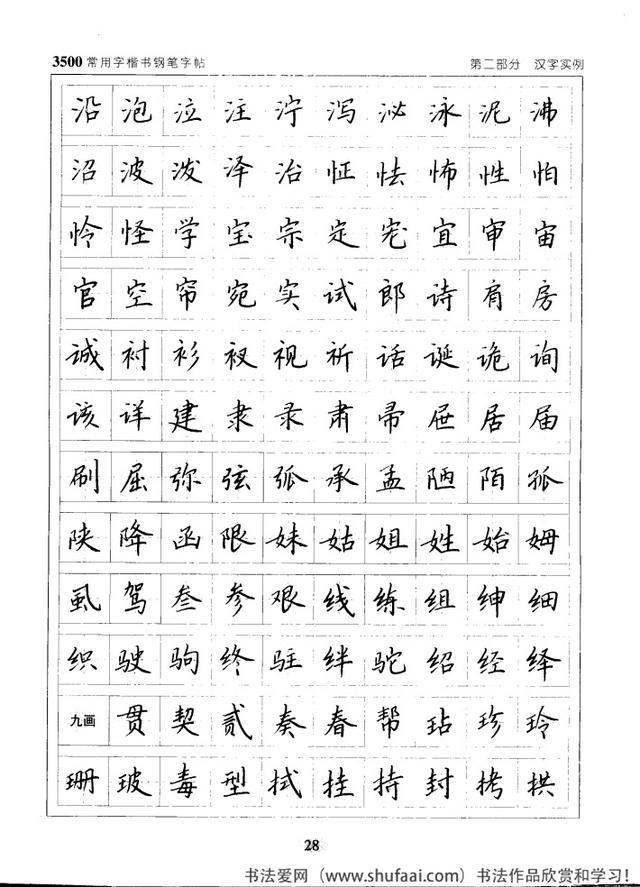 3500 常用字楷书钢笔字帖 第二部分 汉字实例
沿 泡 泣 注 泞 泻 泌 泳 泥 沸
沼 波 泼 泽 治 怔 怯 怖 性 怕
怜 怪 学 宝 宗 定 宠 宜 审 宙
官 空 帘 宛 实 试 郎 诗 肩 房
诚 衬 衫 衩 视 祈 话 诞 诡 询
该 详 建 隶 录 肃 帚 屉 居 届
刷 屈 弥 弦 弧 承 孟 陋 陌 孤
陕 降 函 限 妹 姑 姐 姓 始 姆
虱 驾 叁 参 艰 线 练 组 绅 细
织 驶 驹 终 驻 绊 驼 绍 经 绎
九画 贯 契 贰 奏 春 帮 玷 珍 玲
珊 玻 毒 型 拭 挂 持 封 拷 拱
28
书法爱网（www.shufaai.com）书法作品欣赏和学习！